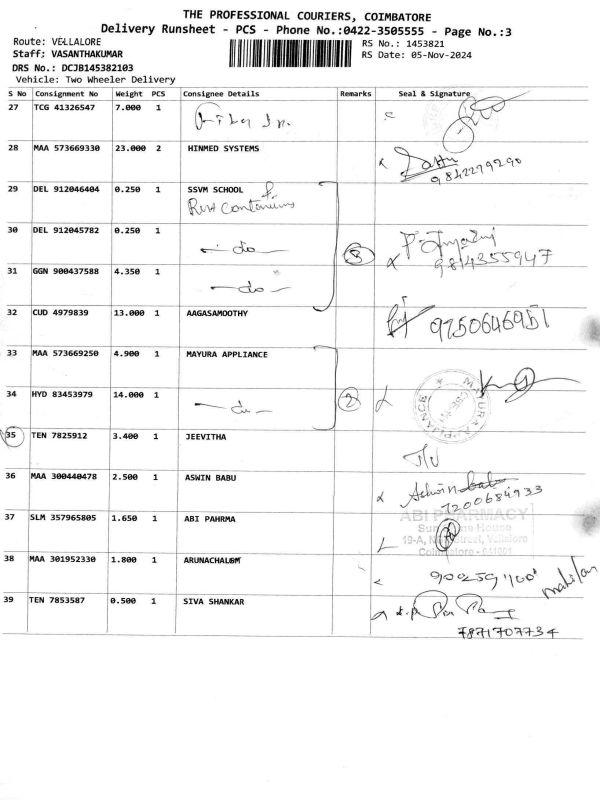 THE PROFESSIONAL COURIERS, COIMBATORE
Delivery Runsheet - PCS - Phone No.:0422-3505555 - Page No.:3
Route: VELLALORE
RS No.: 1453821
Staff; VASANTHAKUMAR
RS Date: 05-Nov-2024
DRS No.: DCJB145382103
Vehicle: Two Wheeler Delivery
S No Consignment No Weight PCS Consignee Details Remarks Seal & Signature
27 TCG 41326547 7.000 1
28 MAA 573669330 23.000 2 HINMED SYSTEMS
9842279290
29 DEL 912046404 0.250 1 SSVM SCHOOL
30 DEL 912045782 0.250 1 - do -
3
9814355947
31 GGN 900437588 4.350 1 - do -
32 CUD 4979839 13.000 1 AAGASAMOOTHY
9750646951
33 MAA 573669250 4.900 1 MAYURA APPLIANCE
34 HYD 83453979 14.000 1 - do -
2
MAYURA APPLIANCE
35 TEN 7825912 3.400 1 JEEVITHA
36 MAA 300440478 2.500 1 ASWIN BABU
Ashwin babu
7200684933
37 SLM 357965805 1.650 1 ABI PAHRMA
ABI PHARMACY
House
19-A, Street, Vellalore
Coimbatore - 641001
38 MAA 301952330 1.800 1 ARUNACHALOM
39 TEN 7853587 0.500 1 SIVA SHANKAR
7871707734